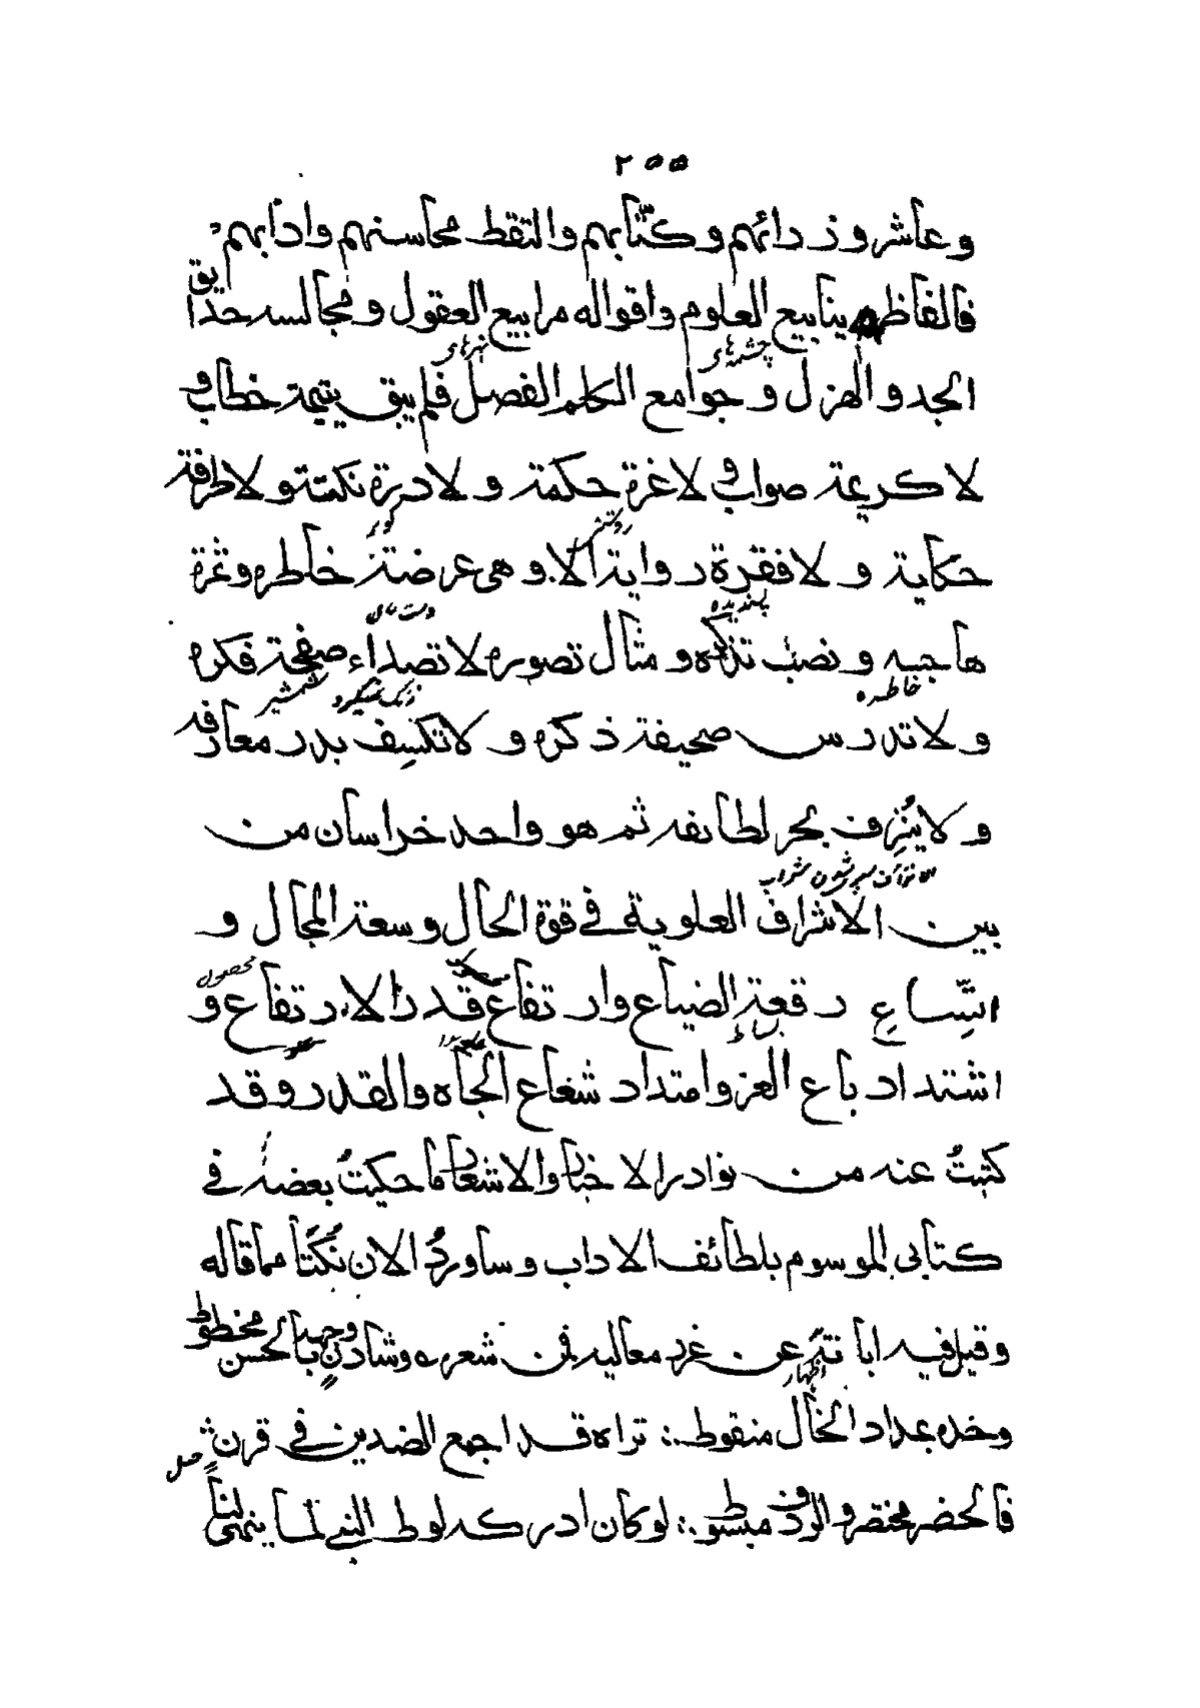 ٢٥٥
وعاشر وزرائهم وكتّابهم والتقط محاسنهم وادابهم
فالفاظهم ينابيع العلوم واقواله مرابيع العقول ومجالسه حدايق
چشمهای نهرهای
الجد والهزل وجوامع الكلم الفصل فلم يبق يتيمة خطاب و
لا كريمة صواب و لا غرة حكمة و لا درة نكتة و لا طرفة
حكاية و لا فقرة رواية الا وهى عرضة خاطره وثمرة
پسندیده
هاجسه ونصب تذكره ومثال تصوره لا تصداء صفحة فكره
خاطره زنک نمیگیرد شمشیر
و لا تدرس صحيفة ذكره و لا تكسِف بدر معارفه
و لا يُنزِف بحر لطائفه ثم هو واحد خراسان من
بين الاشراف العلوية فى قوة الحال وسعة المجال و
محصول
اتّساعِ رقعة الضياع وارتفاع قدر الارتفاع و
اشتداد باع العز وامتداد شعاع الجاه والقدر وقد
كتبتُ عنه من نوادر الاخبار والاشعار ما حكيتُ بعضه فى
كتابى الموسوم بلطائف الاداب وساوردُ الان نُكَتًا مما قاله
وقيل فيه ابانة عن غرر معاليه فمن شعره وشادنٍ وجهه بالحسن مخطوط
اظهار
وخده بمداد الخال منقوط ∴ تراه قد اجمع الضدين فى قرن
فالخصر مختصر والردف مبسوط ∴ لو كان ادركه لوط النبى لما ينهى لنا